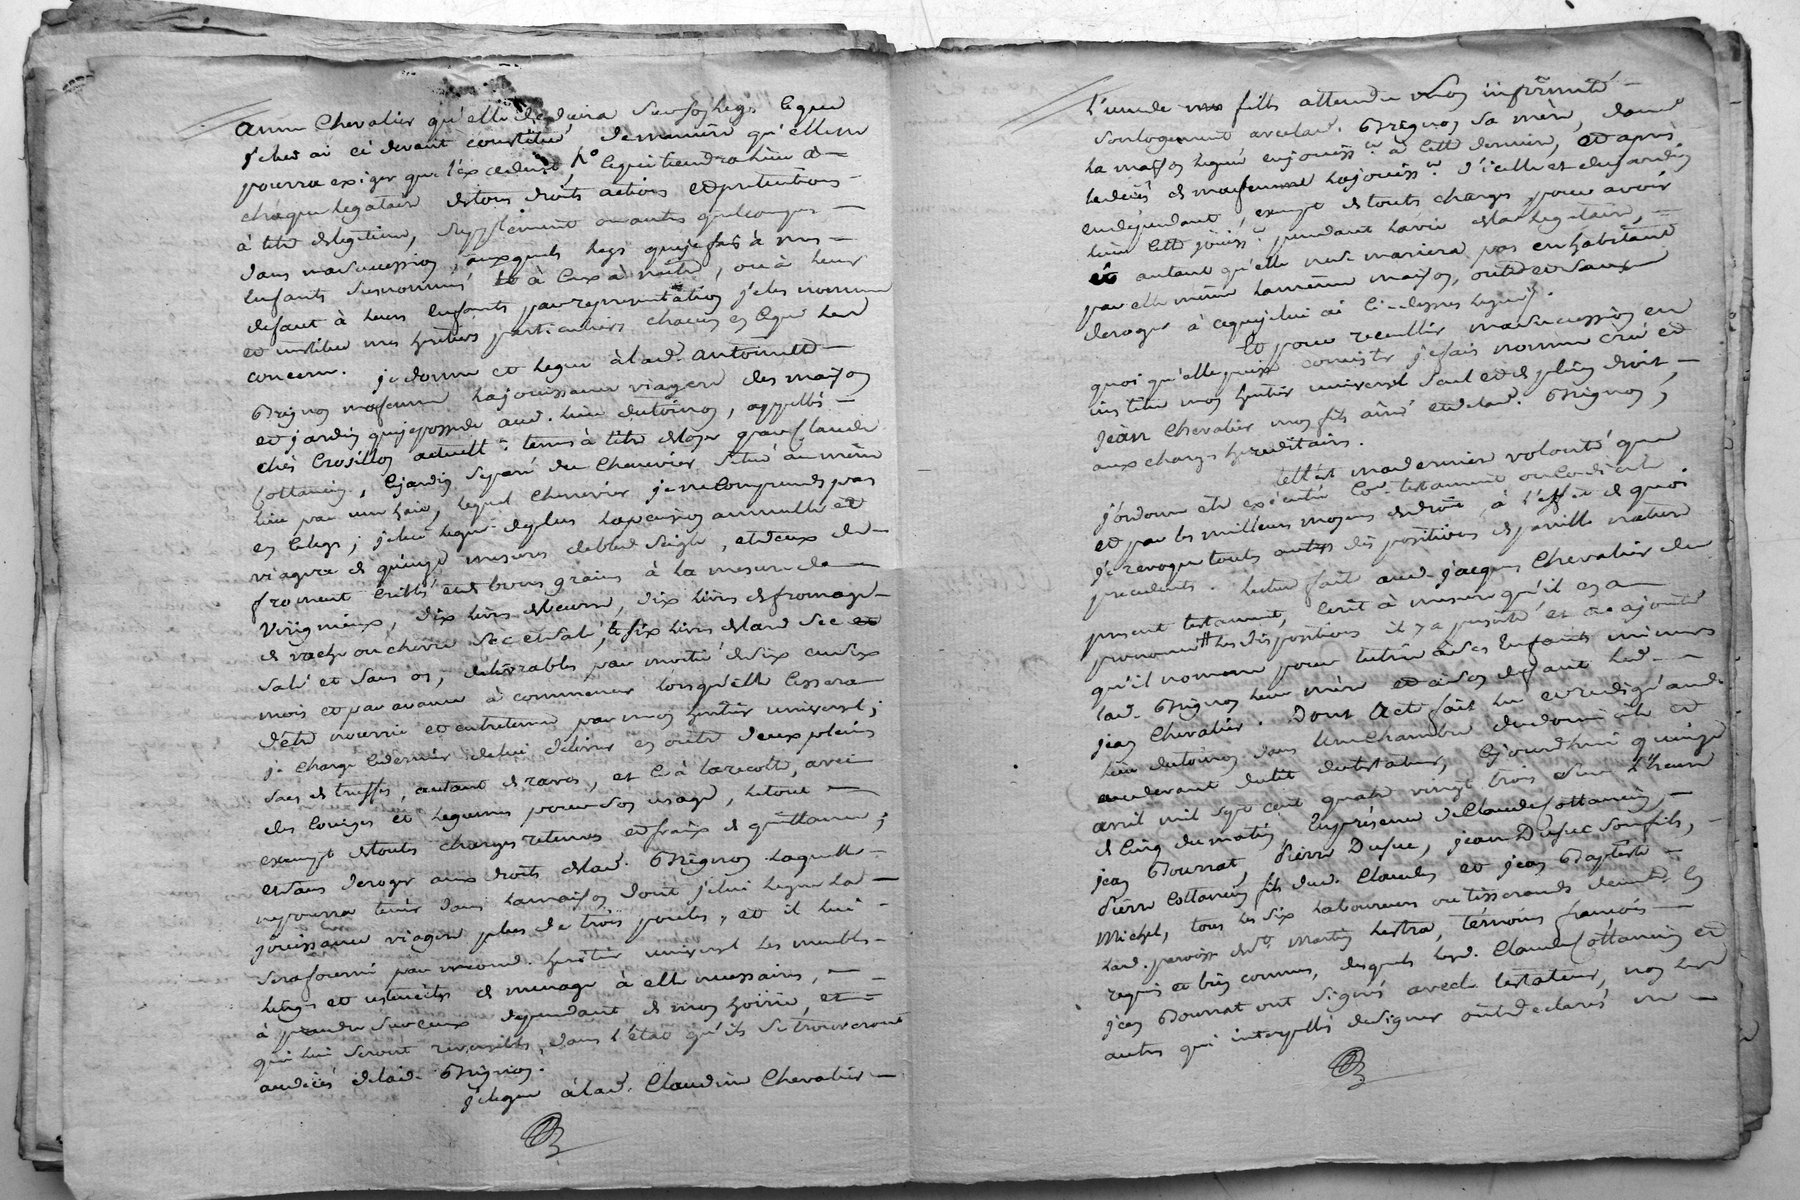 anne Chevalier qu'elle deduira sur son legs ce que
je lui ai ci devant constitué, de maniere qu'elle ne
pourra exiger que l'excedent, ce qui tiendra lieu à
chaque legataire de tous droits actions et pretentions
à titre de legitime, supplement ou autres quelconques
dans ma succession, auxquels legs que je fais à mes
enfants susnommés et à ceux à naitre, ou à leur
defaut à leurs enfants par representation je les nomme
et institue mes heritiers particuliers chacun en ce qui les
concerne. je donne et legue à lad. antoinette
Brignon ma femme la jouissance viagere des maison
et jardin que je possede aud. lieu dutoinon, appellés
chés Crosillon actuellt. tenus à titre de loyer par Claude
Cottancin, le jardin separé du Chenevier situé au même
lieu par une haie, lequel Chenevier je ne comprends pas
en ce legs; je lui legue de plus la pension annuelle et
viagere de quinze mesures de bled seigle, et deux de
froment criblés et de bons grains à la mesure de
Virigneux, dix livres de beurre, dix livres de fromage
de vache ou chevre sec et salé, six livres de lard sec
salé et sans os, delivrables par moitié de six en six
mois et par avance à commencer lorsqu'elle cessera
d'être nourrie et entretenue par mon heritier universel;
je charge ce dernier de lui delivrer en outre deux pleins
sacs de truffes, autant de raves, et ce à la recolte, avec
des courges et legumes pour son usage, le tout
exempt de toutes charges retenues et frais de quittance;
et sans deroger aux droits de lad. Brignon laquelle
ne pourra tenir dans la maison dont je lui legue la
jouissance viagere plus de trois poules, et il lui
sera fourni par mond. heritier universel les meubles
linges et ustenciles de menage à elle necessaires,
à prendre sur ceux dependant de mon hoirie, et
qui lui seront reversibles, dans l'état qu'ils se trouveront
au decès de lad. Brignon.
je legue à lad. Claudine Chevalier
l'une de mes filles attendu son infirmité
son logement avec lad. Brignon sa mere, dans
la maison leguée en jouissce. à cette derniere, et après
le decès de ma femme la jouissce. d'icelle et du jardin
en dependant, exempt de toutes charges, pour avoir
lieu cette jouissce. pendant la vie de la legataire,
et autant qu'elle ne se mariera pas en habitant
par elle même la même maison, outre et sans
deroger à ce que je lui ai ci-dessus legué.
Et pour recueillir ma succession en
quoi qu'elle puisse consister je fais nomme crée et
institue mon heritier universel seul et de plein droit
Jean Chevalier mon fils ainé et de lad. Brignon,
aux charges hereditaires.
telle est ma derniere volonté que
j'ordonne être executée comme testament ou codicile
et par les meilleurs moyens de droit, à l'effet de quoi
je revoque toutes autres dispositions de pareille nature
precedentes. Lecture faite aud. jacques Chevalier du
present testament, écrit à mesure qu'il en a
prononcé les dispositions il y a persisté et a ajouté
qu'il nomme pour tutrice à ses Enfants mineurs
lad. Brignon leur mere et à son defaut led.
jean Chevalier. Dont Acte fait lu et redigé aud.
lieu dutoinon dans une chambre du domicile et
au devant du lit du testateur, cejourdhui quinze
avril mil sept cent quatre vingt trois sur l'heure
de cinq du matin, En presence de Claude Cottancin,
jean Bournat, Pierre Dufuc, jean Dufuc son fils,
Pierre Cottancin fils dud. Claude et jean Baptiste
Michel, tous les six laboureurs ou tisserands demts. en
lad. paroisse de st. Martin lestra, témoins françois
requis et bien connus, desquels led. Claude Cottancin et
jean Bournat ont signés avec le testateur, non les
autres qui interpellés de signer ont declaré ne